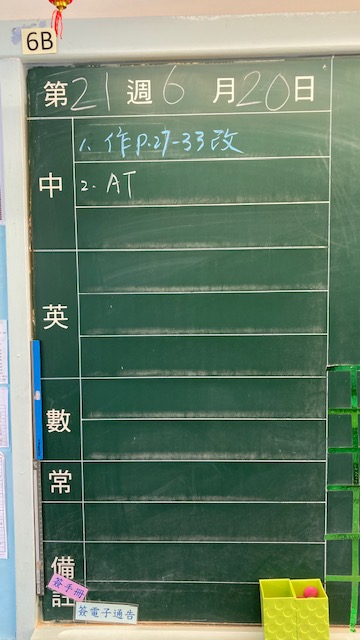 6B
第21週6月20日
中
1. 作P.27-33改
2. AT
英
數
常
備註
簽手冊
簽電子通告